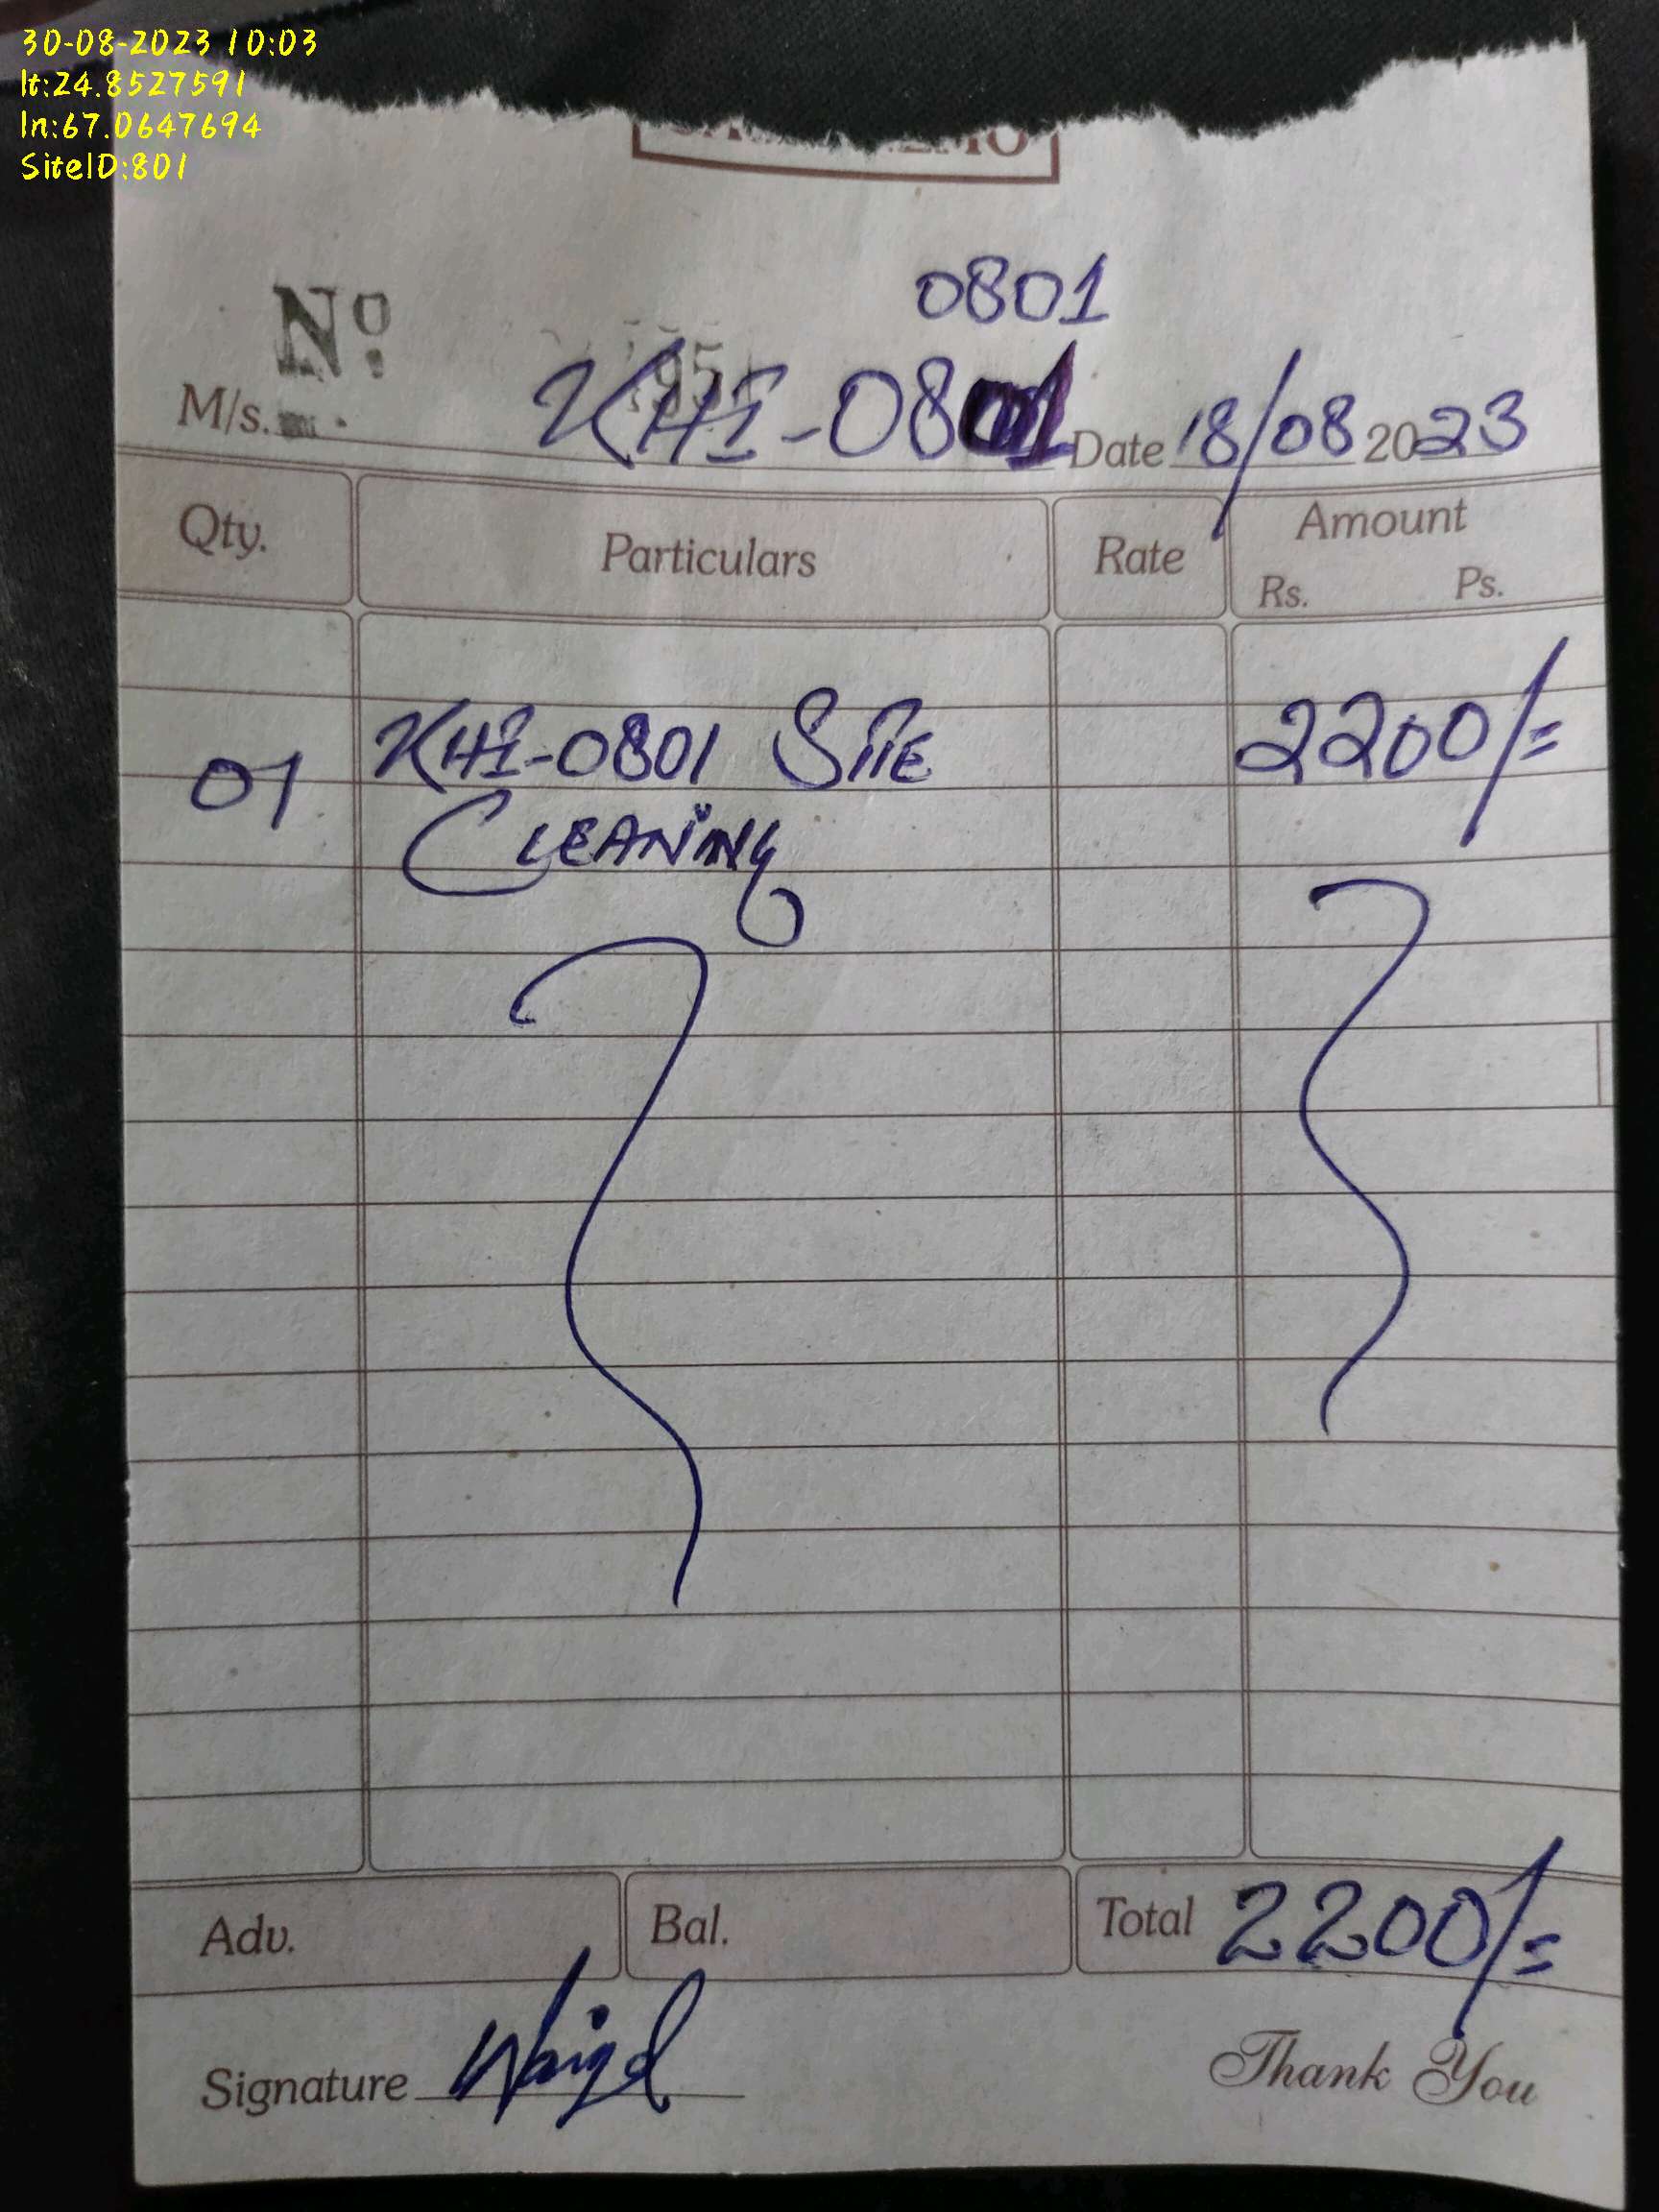 30-08-2023 10:03
lt:24.8527591
ln:67.0647694
SiteID:801
0801
Nº
M/s. KHI-0801 Date 18/08 2023
Qty. Particulars Rate Amount
Rs. Ps.
01 KHI-0801 SITE 2200/=
CLEANING
Adv. Bal. Total 2200/=
Signature
Thank You